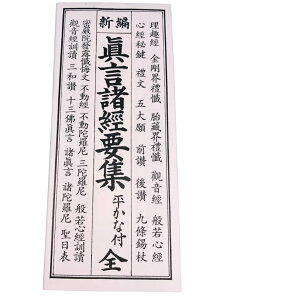 新編
理趣經 金剛界禮懺 胎藏界禮懺 觀音經 般若心經
心經秘鍵 禮文 五大願 前讃 後讃 九條錫杖
眞言諸經要集 平かな付 全
密嚴院發露懺悔文 不動經 不動陀羅尼 三陀羅尼 般若心經訓讀
觀音經訓讀 三和讃 十三佛眞言 諸眞言 諸陀羅尼 聖日表